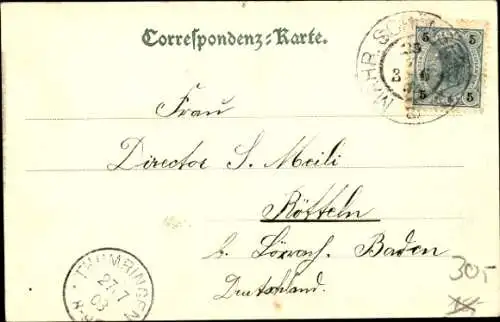 Correspondenz-Karte.
MÄHR. SCH
5 5
5 5
25
3
Frau
Director S. Meili
Rötteln
b. Lörrach. Baden
Deutschland.
THUMRINGEN
27.7
03
30,-